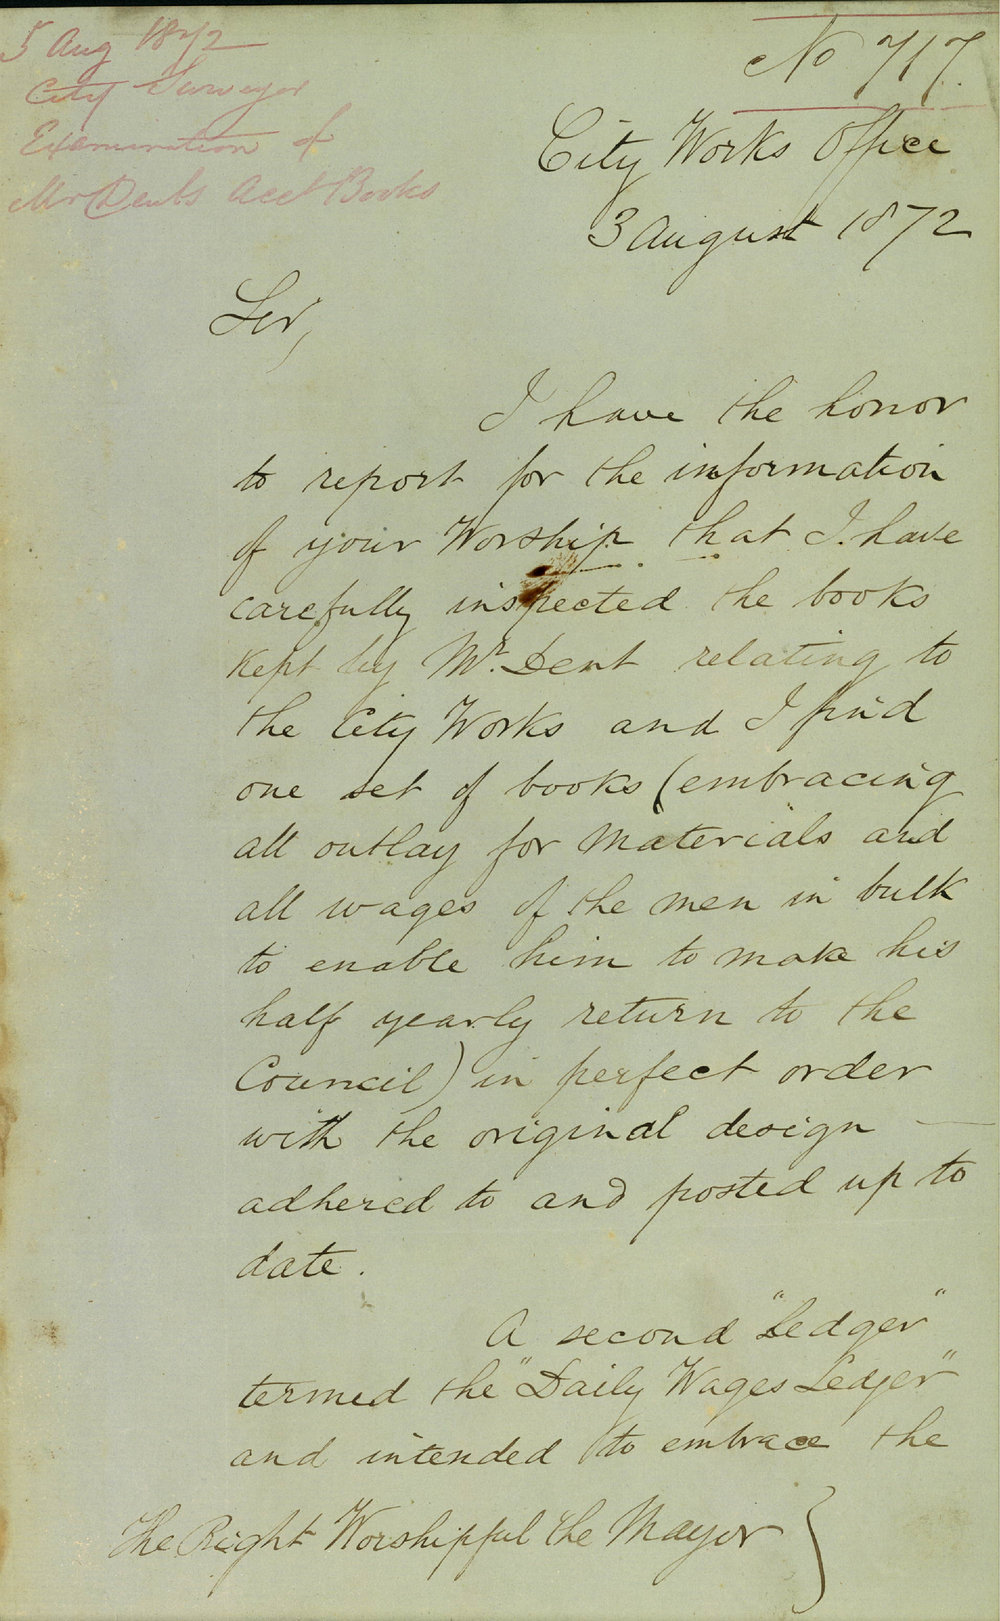 5 Aug 1872
City Surveyor
Examination of
Mr Dents Acct Books
No 717.
City Works Office
3 August 1872
Sir,
I have the honor
to report for the information
of your Worship that I have
carefully inspected the books
kept by Mr. Dent relating to
the City Works and I find
one set of books (embracing
all outlay for materials and
all wages of the men in bulk
to enable him to make his
half yearly return to the
Council) in perfect order
with the original design —
adhered to and posted up to
date.
A second "Ledger"
termed the "Daily Wages Ledger"
and intended to embrace the
The Right Worshipful the Mayor }